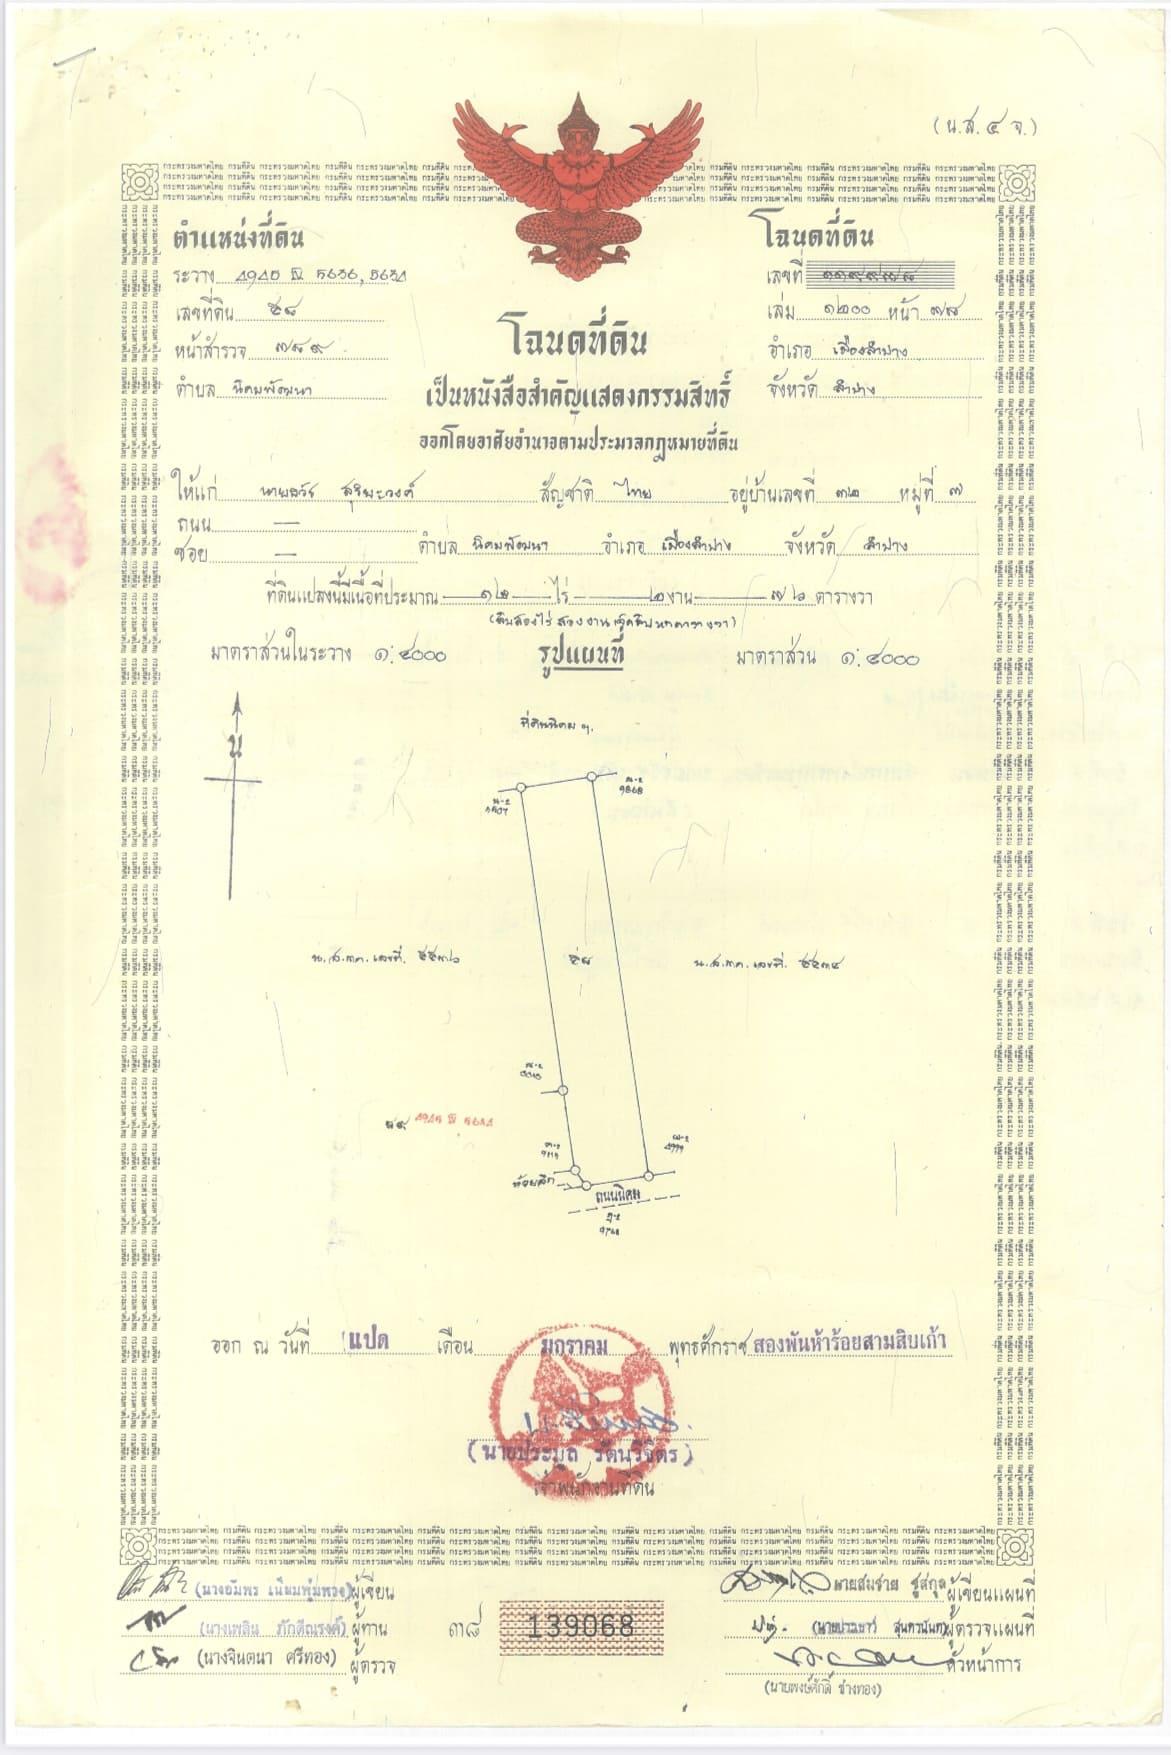 (น.ส.๔ จ.)
ตำแหน่งที่ดิน
ระวาง 4945 IV 5636, 5634
เลขที่ดิน ๕๘
หน้าสำรวจ ๗๘๙
ตำบล นิคมพัฒนา
โฉนดที่ดิน
เลขที่ ๑๑๙๙๗๘
เล่ม ๑๒๐๐ หน้า ๗๘
อำเภอ เมืองลำปาง
จังหวัด ลำปาง
โฉนดที่ดิน
เป็นหนังสือสำคัญแสดงกรรมสิทธิ์
ออกโดยอาศัยอำนาจตามประมวลกฎหมายที่ดิน
ให้แก่ นายสวัร สุริยะวงศ์ สัญชาติ ไทย อยู่บ้านเลขที่ ๓๒ หมู่ที่ ๗
ถนน —
ซอย — ตำบล นิคมพัฒนา อำเภอ เมืองลำปาง จังหวัด ลำปาง
ที่ดินแปลงนี้มีเนื้อที่ประมาณ ๑๒ ไร่ ๒ งาน ๗๖ ตารางวา
(สิบสองไร่ สองงาน เจ็ดสิบหกตารางวา)
มาตราส่วนในระวาง ๑:๔๐๐๐ รูปแผนที่ มาตราส่วน ๑:๔๐๐๐
น
ที่ดินนิคม ฯ
9868
น.ส.๓ก. เลขที่. ๕๕๓๖ ๕๘ น.ส.๓ก. เลขที่. ๕๕๓๔
๕๙ 4945 IV 5634
ห้วยลึก
ถนนนิคม
ออก ณ วันที่ แปด เดือน มกราคม พุทธศักราช สองพันห้าร้อยสามสิบเก้า
(นายประมูล รัตนวิจิตร)
เจ้าพนักงานที่ดิน
(นางอัมพร เนียมพุ่มพวง) ผู้เขียน
(นางเพลิน ภักดีณรงค์) ผู้ทาน
(นางจินตนา ศรีทอง) ผู้ตรวจ
๓๘ 139068
นายสมชาย ชูสกุล ผู้เขียนแผนที่
สุนทรนันท ผู้ตรวจแผนที่
หัวหน้าการ
(นายพงษ์ศักดิ์ ช่างทอง)